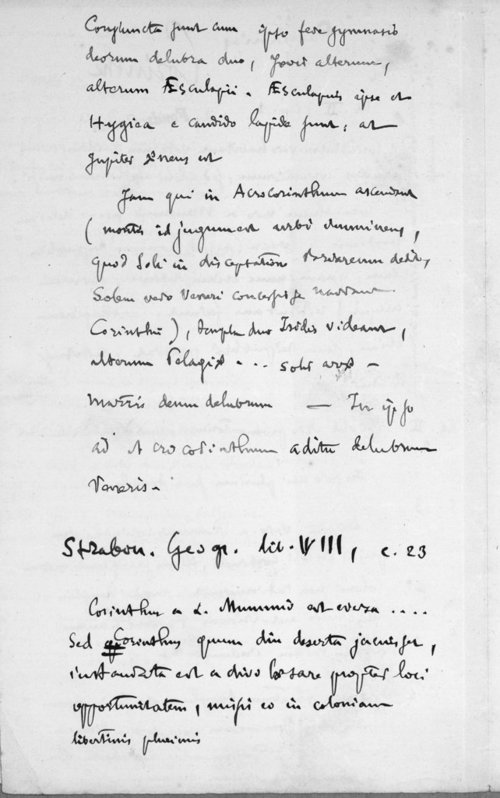 Conjuncta sunt cum ipso fere gymnasio
deorum delubra duo, Jovis alterum,
alterum Æsculapii. Æsculapius ipse et
Hygiea e candido lapide sunt; at
Jupiter æneus est
Jam qui in Acrocorinthum ascendunt
( montis id jugum est urbi imminens,
quod Soli in disceptatione Briareum dedisse,
Solem vero Veneri concessisse narrant
Corinthii ), templa duo Isidis videant,
alterum Pelagiæ ... solis aræ -
matris deum delubrum — In ipso
ad Acrocorinthum aditu delubrum
Veneris -
Strabon. Geogr. lib. VIII, c. 23
Corinthus a L. Mummio est eversa ....
Sed Corinthus quum diu deserta jacuisset,
instaurata est a divo Cæsare propter loci
opportunitatem, missi eo in coloniam
libertinis plurimis